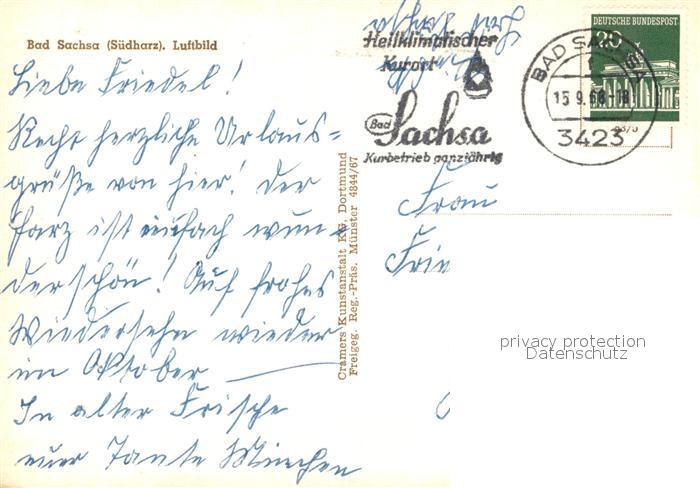 Bad Sachsa (Südharz). Luftbild
Liebe Friedel!
Recht herzliche Urlaus=
grüße von hier! Der
Harz ist einfach wun
derschön! Auf frohes
Wiedersehn wieder
im Oktober
In alter Frische
euer Tante Mienchen
Cramers Kunstanstalt KG. Dortmund
Freigeg. Reg.-Präs. Münster 4844/67
Heilklimatischer
Kurort
Bad Sachsa
Kurbetrieb ganzjährig
BAD SACHSA
15.9.68-18
3423
DEUTSCHE BUNDESPOST
20
Frau
Frie
privacy protection
Datenschutz